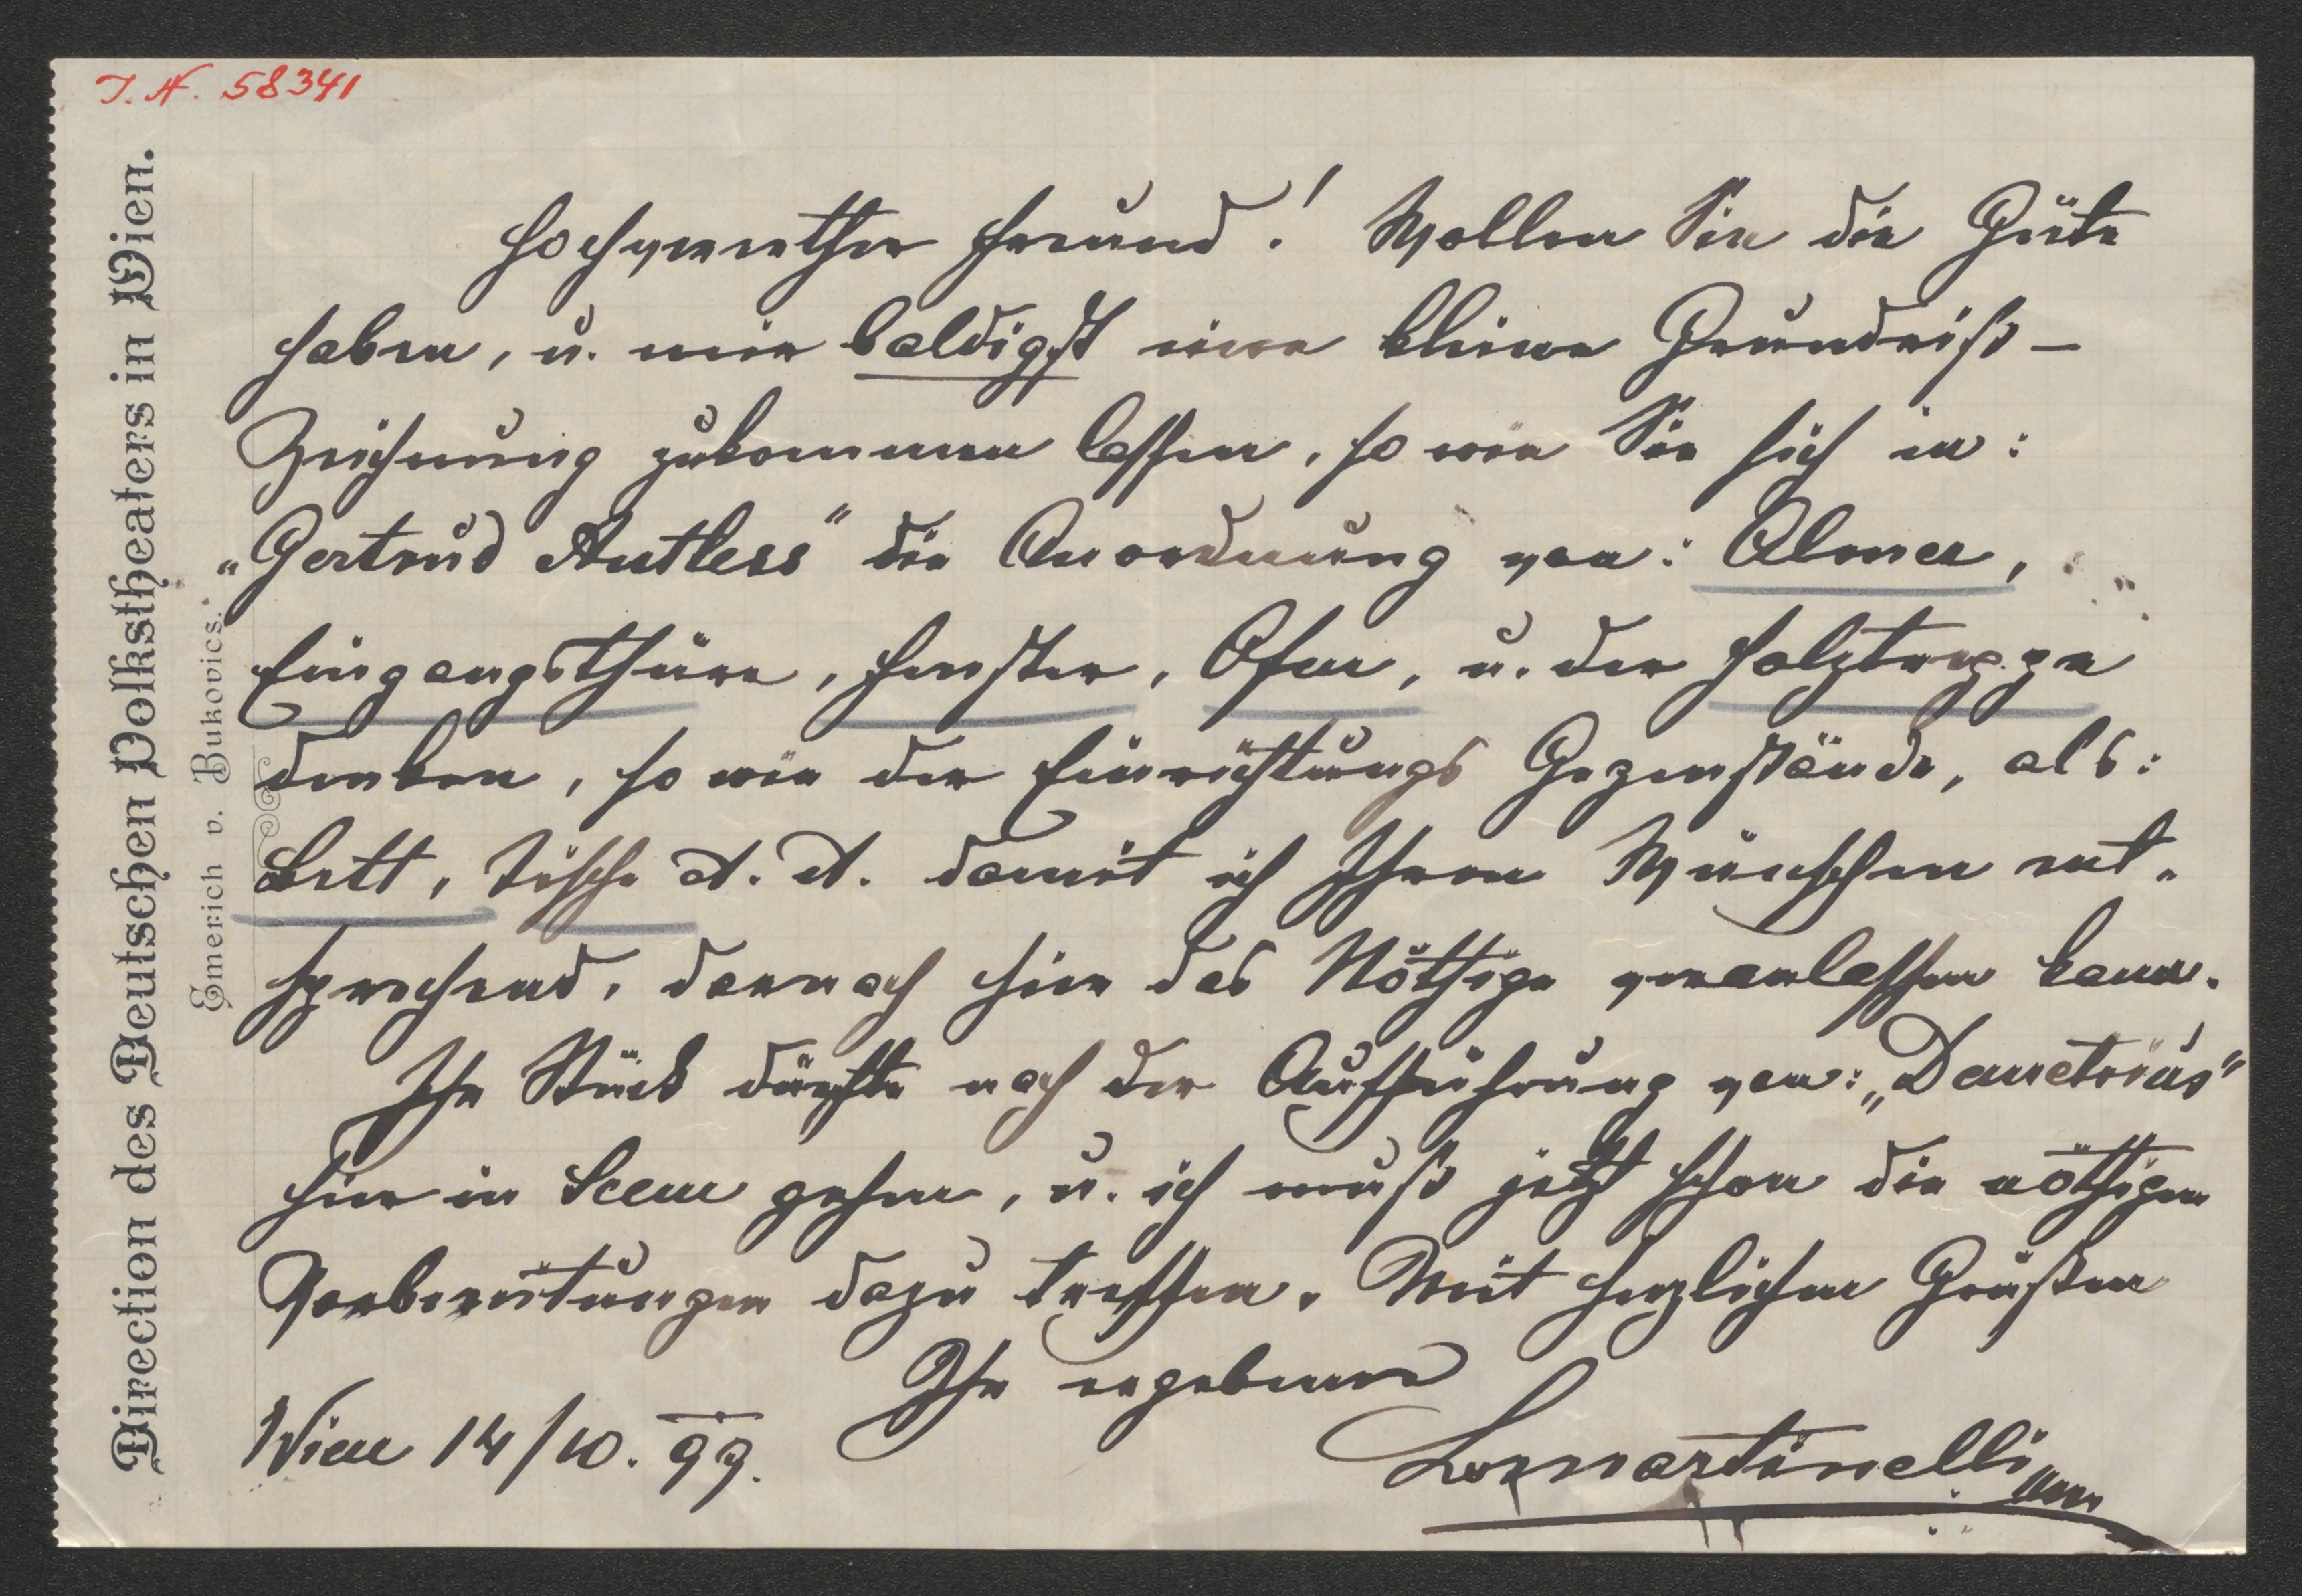 J. N. 58341
Direction des Deutschen Volkstheaters in Wien.
Emerich v. Bukovics.
Hochverehrter Freund! Wollen Sie die Güte
haben, u. mir baldigst eine kleine Grundriß-
Zeichnung zukommen lassen, so wie Sie sich in:
„Gertrud Antless" die Anordnung von: Alover,
Eingangsthüre, Fenster, Ofen, u. der Holztreppe
denken, so wie der Einrichtungs Gegenstände, als:
Bett, Tische etc. etc. damit ich Ihren Wünschen ent-
sprechend, darnach hier das Nöthige veranlassen kann.
Ihr Stück dürfte nach der Aufführung von: „Demetrius"
hier in Scene gehen, u. ich muß jetzt schon die nöthigen
Vorbereitungen dazu treffen. Mit herzlichen Grüßen
Ihr ergebener
Wien 14/10. 99.
Martinelli